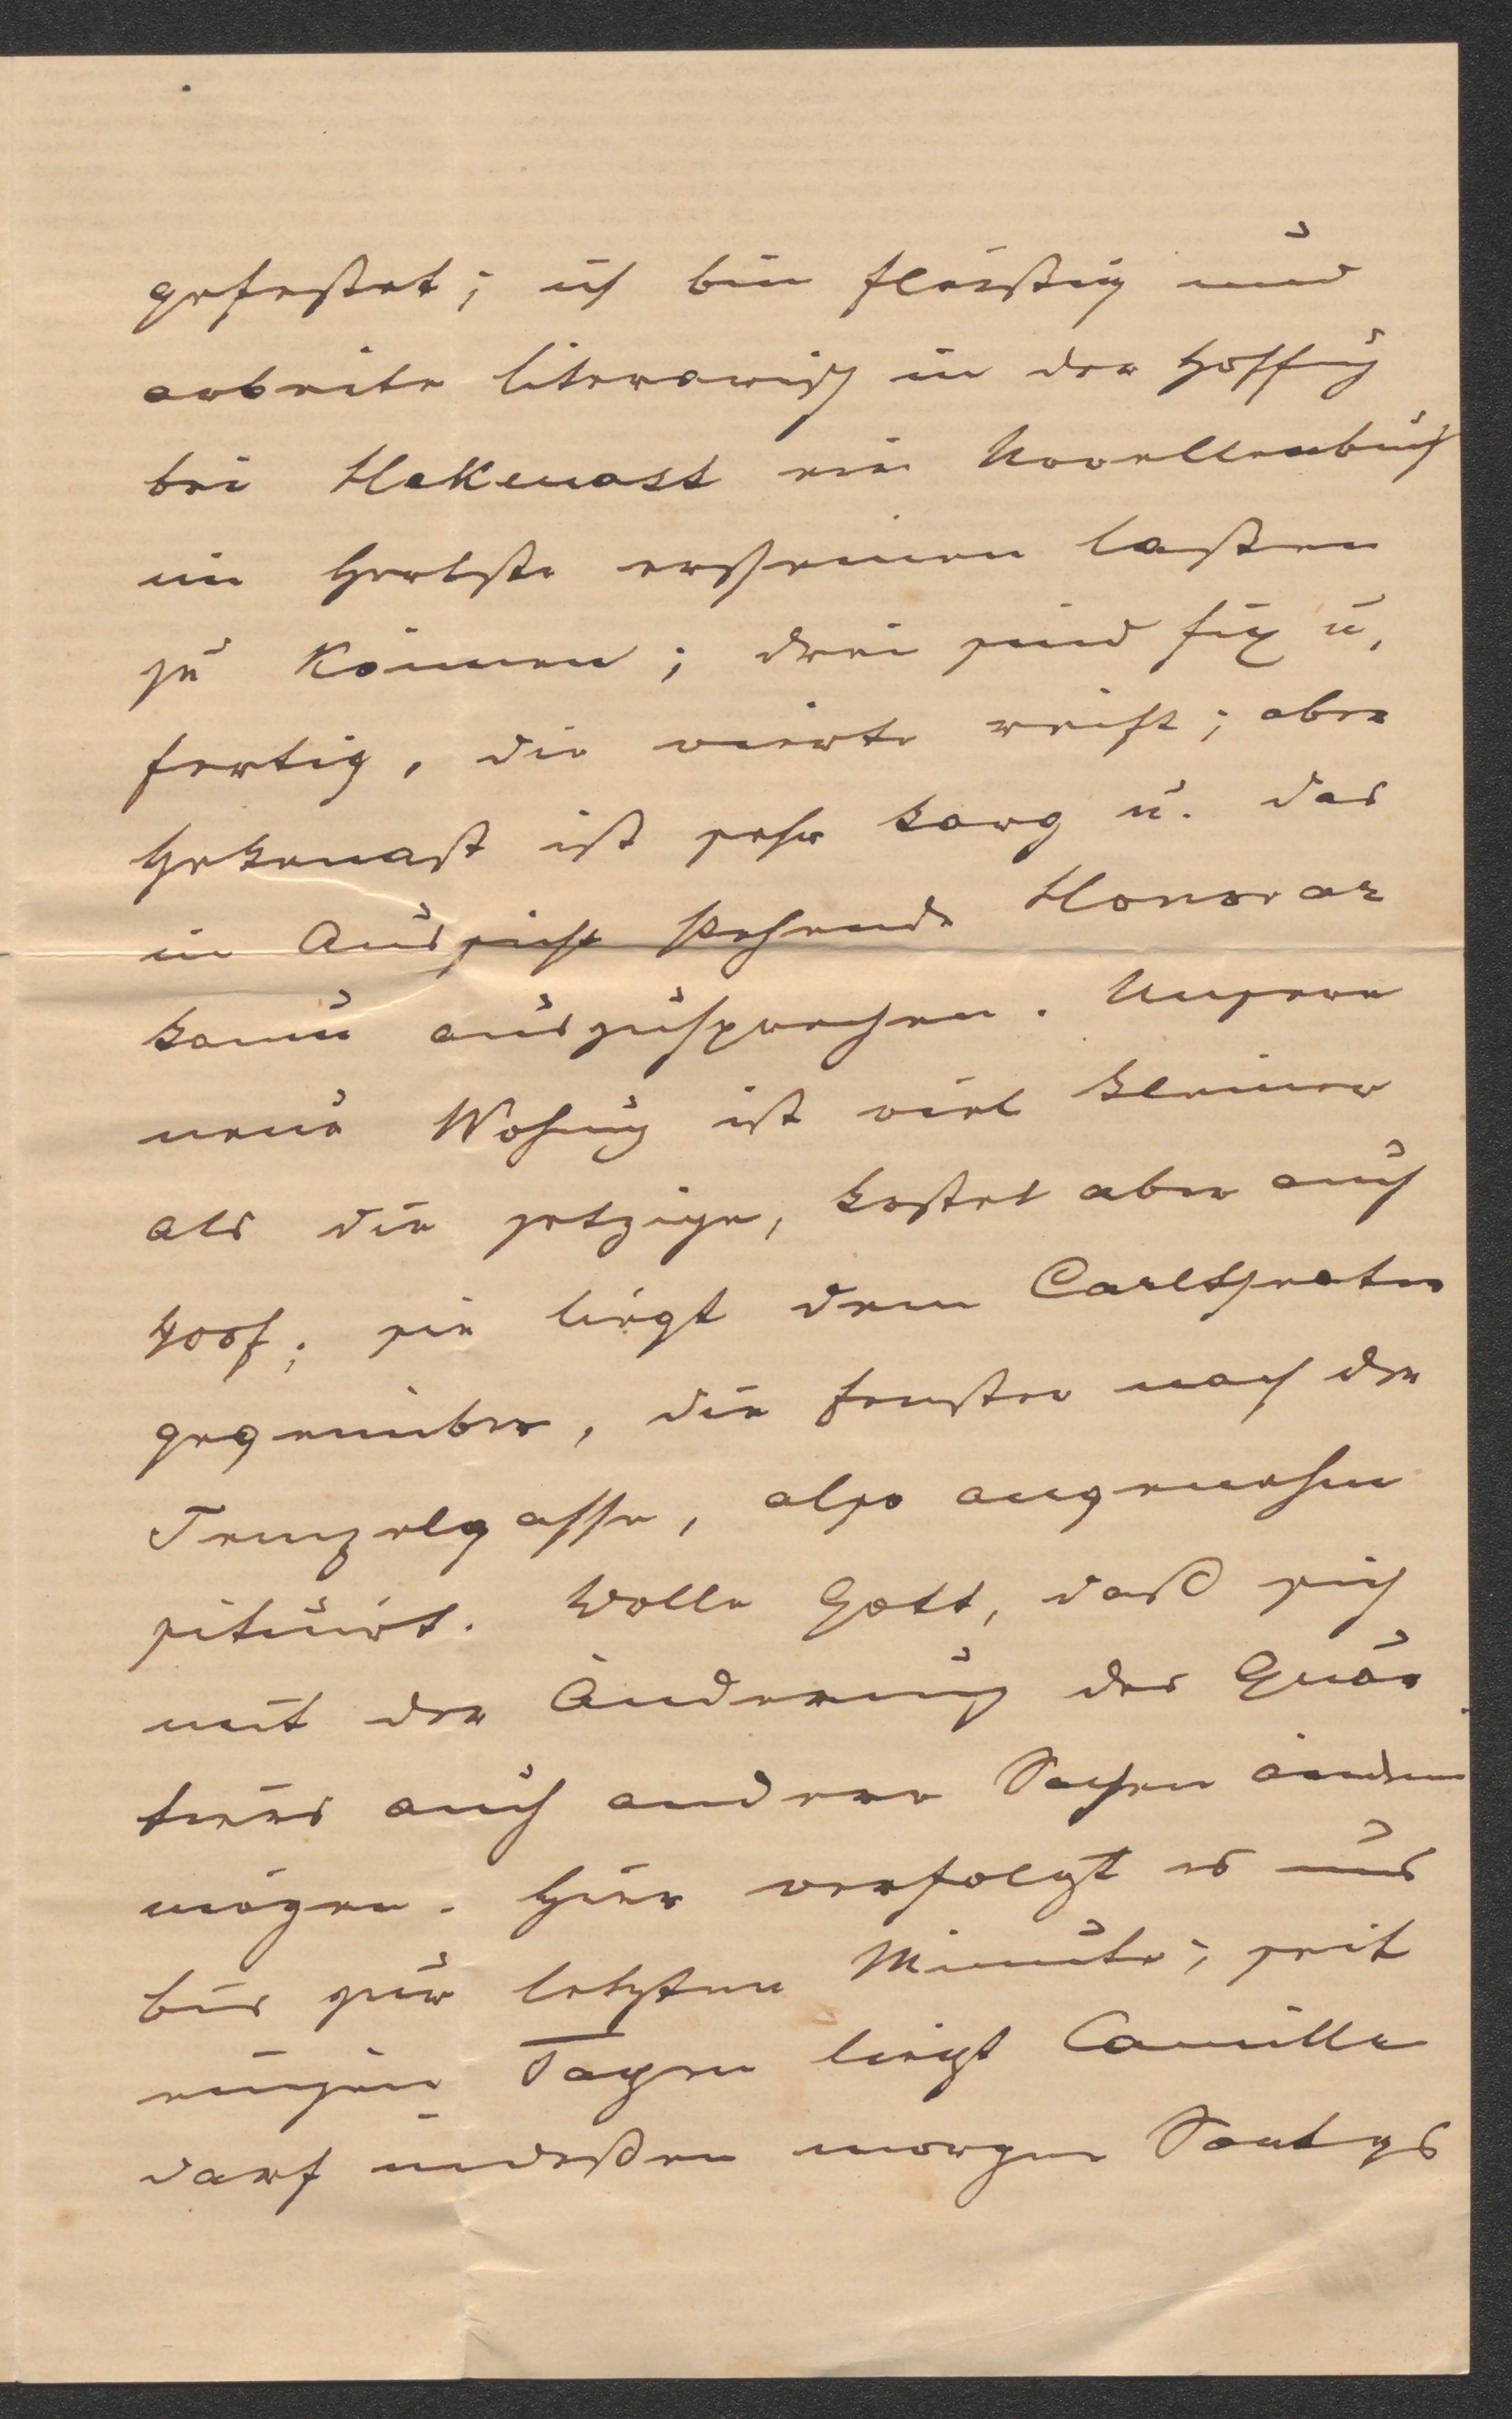 gefestet; ich bin fleißig und
arbeite literarisch in der Hoffg
bei Hekenast ein Novellenbuch
im Herbste erscheinen lassen
zu können; drei sind fix u.
fertig, die vierte reift; aber
Hekenast ist sehr karg u. das
in Aussicht stehende Honorar
kaum auszusprechen. Unsere
neue Wohng ist viel kleiner
als die jetzige, kostet aber auch
400f; sie liegt dem Carltheater
gegenüber, die Fenster nach der
Tempelgasse, also angenehm
situirt. Wolle Gott, daß sich
mit der Änderung des Quar
tiers auch andere Sachen ändern
mögen. Hier verfolgt es uns
bis zur letzten Minute; seit
einigen Tagen liegt Camilla
darf indeßen morgen Sontgs